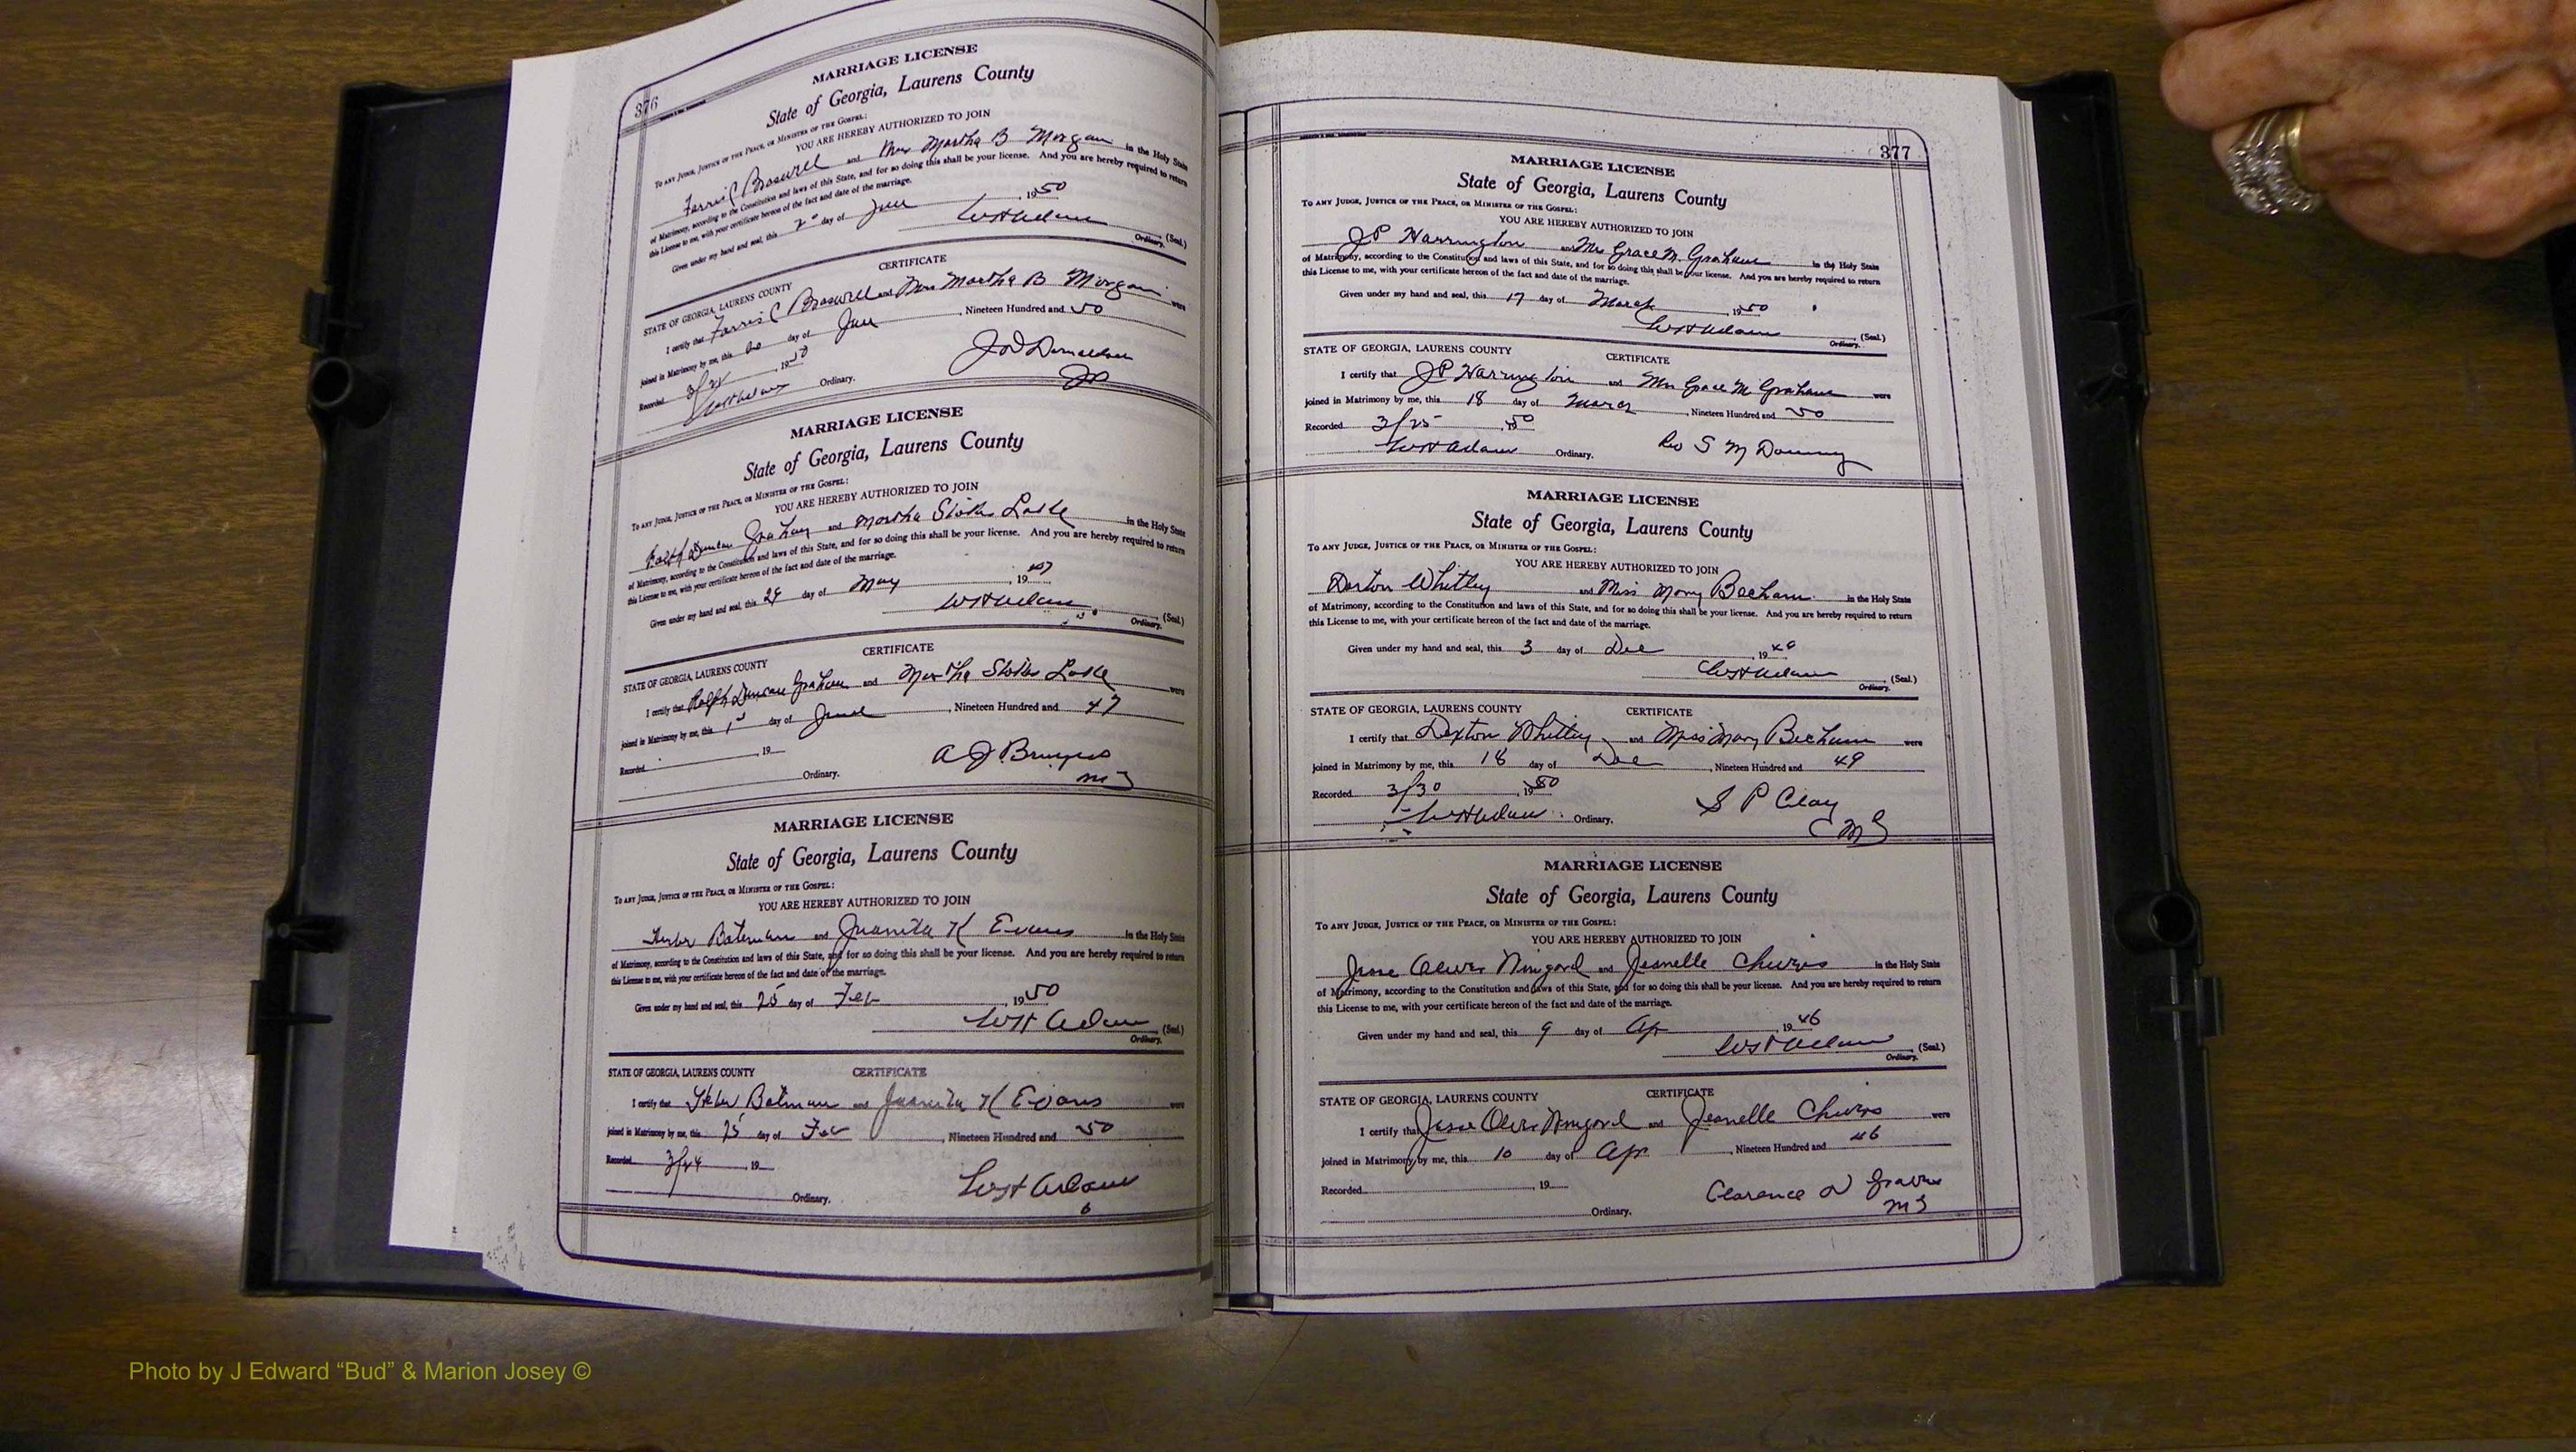 376
MARRIAGE LICENSE
State of Georgia, Laurens County
To any Judge, Justice of the Peace, or Minister of the Gospel:
YOU ARE HEREBY AUTHORIZED TO JOIN
Farris C Braswell and Mrs Martha B Morgan in the Holy State
of Matrimony, according to the Constitution and laws of this State, and for so doing this shall be your license. And you are hereby required to return
this License to me, with your certificate hereon of the fact and date of the marriage.
Given under my hand and seal, this day of Jan 1950
WH Adams (Seal.)
Ordinary.
CERTIFICATE
STATE OF GEORGIA, LAURENS COUNTY
I certify that Farris C Braswell and Mrs Martha B Morgan were
joined in Matrimony by me, this 20 day of Jan, Nineteen Hundred and 50
Recorded 1950
WH Adams Ordinary.
J D Donaldson
JP
MARRIAGE LICENSE
State of Georgia, Laurens County
To any Judge, Justice of the Peace, or Minister of the Gospel:
YOU ARE HEREBY AUTHORIZED TO JOIN
Ralph Duncan Graham and Martha Stokes in the Holy State
of Matrimony, according to the Constitution and laws of this State, and for so doing this shall be your license. And you are hereby required to return
this License to me, with your certificate hereon of the fact and date of the marriage.
Given under my hand and seal, this 29 day of May 1947
WH Adams (Seal.)
Ordinary.
CERTIFICATE
STATE OF GEORGIA, LAURENS COUNTY
I certify that Ralph Duncan Graham and Martha Stokes were
joined in Matrimony by me, this 1st day of June, Nineteen Hundred and 47
Recorded 19
Ordinary.
A J
MG
MARRIAGE LICENSE
State of Georgia, Laurens County
To any Judge, Justice of the Peace, or Minister of the Gospel:
YOU ARE HEREBY AUTHORIZED TO JOIN
Heber Bateman and Juanita K Evans in the Holy State
of Matrimony, according to the Constitution and laws of this State, and for so doing this shall be your license. And you are hereby required to return
this License to me, with your certificate hereon of the fact and date of the marriage.
Given under my hand and seal, this 25 day of Feb 1950
WH Adams (Seal.)
Ordinary.
STATE OF GEORGIA, LAURENS COUNTY CERTIFICATE
I certify that Heber Bateman and Juanita K Evans were
joined in Matrimony by me, this 25 day of Feb, Nineteen Hundred and 50
Recorded 3/24 19
Ordinary.
WH Adams
377
MARRIAGE LICENSE
State of Georgia, Laurens County
To any Judge, Justice of the Peace, or Minister of the Gospel:
YOU ARE HEREBY AUTHORIZED TO JOIN
JP Harrington and Mrs Grace M. Graham in the Holy State
of Matrimony, according to the Constitution and laws of this State, and for so doing this shall be your license. And you are hereby required to return
this License to me, with your certificate hereon of the fact and date of the marriage.
Given under my hand and seal, this 17 day of March 1950
WH Adams (Seal.)
Ordinary.
STATE OF GEORGIA, LAURENS COUNTY CERTIFICATE
I certify that JP Harrington and Mrs Grace M Graham were
joined in Matrimony by me, this 18 day of March, Nineteen Hundred and 50
Recorded 3/25 50
WH Adams Ordinary.
Rev S M
MARRIAGE LICENSE
State of Georgia, Laurens County
To any Judge, Justice of the Peace, or Minister of the Gospel:
YOU ARE HEREBY AUTHORIZED TO JOIN
Dexton Whitley and Miss Mary Becham in the Holy State
of Matrimony, according to the Constitution and laws of this State, and for so doing this shall be your license. And you are hereby required to return
this License to me, with your certificate hereon of the fact and date of the marriage.
Given under my hand and seal, this 3 day of Dec 19
WH Adams (Seal.)
Ordinary.
STATE OF GEORGIA, LAURENS COUNTY CERTIFICATE
I certify that Dexton Whitley and Miss Mary Becham were
joined in Matrimony by me, this 18 day of Dec, Nineteen Hundred and 49
Recorded 3/30 1950
WH Adams Ordinary.
S P Clay
MG
MARRIAGE LICENSE
State of Georgia, Laurens County
To any Judge, Justice of the Peace, or Minister of the Gospel:
YOU ARE HEREBY AUTHORIZED TO JOIN
Jesse and Jeanelle in the Holy State
of Matrimony, according to the Constitution and laws of this State, and for so doing this shall be your license. And you are hereby required to return
this License to me, with your certificate hereon of the fact and date of the marriage.
Given under my hand and seal, this 9 day of Apr 1946
WH Adams (Seal.)
Ordinary.
STATE OF GEORGIA, LAURENS COUNTY CERTIFICATE
I certify that Jesse and Jeanelle were
joined in Matrimony by me, this 10 day of Apr, Nineteen Hundred and 46
Recorded 19
Ordinary.
Clarence D Graves
MG
Photo by J Edward “Bud” & Marion Josey ©